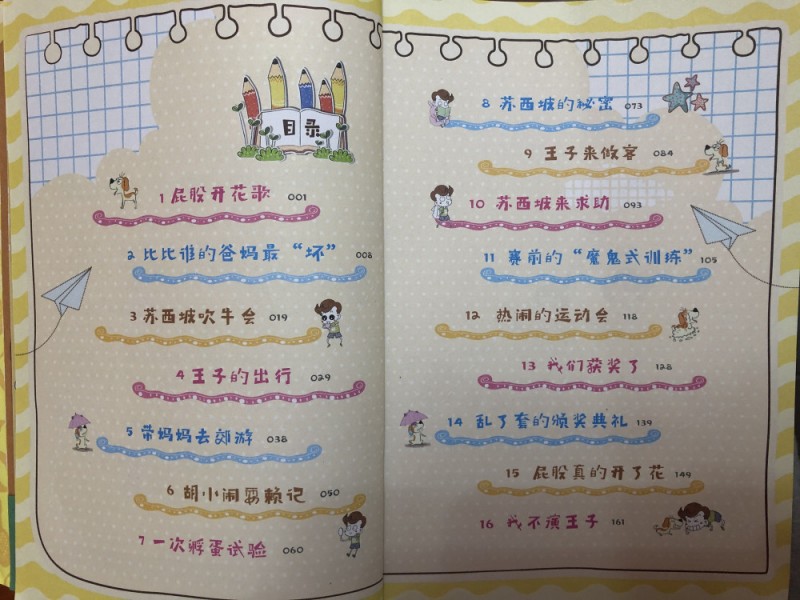 目录
1 屁股开花歌 001
2 比比谁的爸妈最“坏” 008
3 苏西坡吹牛会 019
4 王子的出行 029
5 带妈妈去郊游 038
6 胡小闹耍赖记 050
7 一次孵蛋试验 060
8 苏西坡的秘密 073
9 王子来做客 084
10 苏西坡来求助 093
11 赛前的“魔鬼式训练” 105
12 热闹的运动会 118
13 我们获奖了 128
14 乱了套的颁奖典礼 139
15 屁股真的开了花 149
16 我不演王子 161